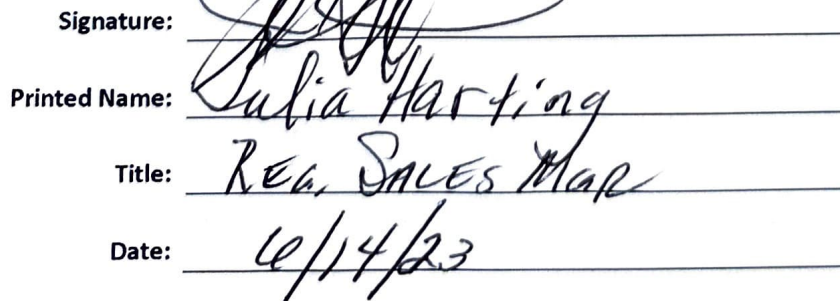 Signature:
Printed Name: Julia Harting
Title: Reg. Sales Mgr
Date: 6/14/23